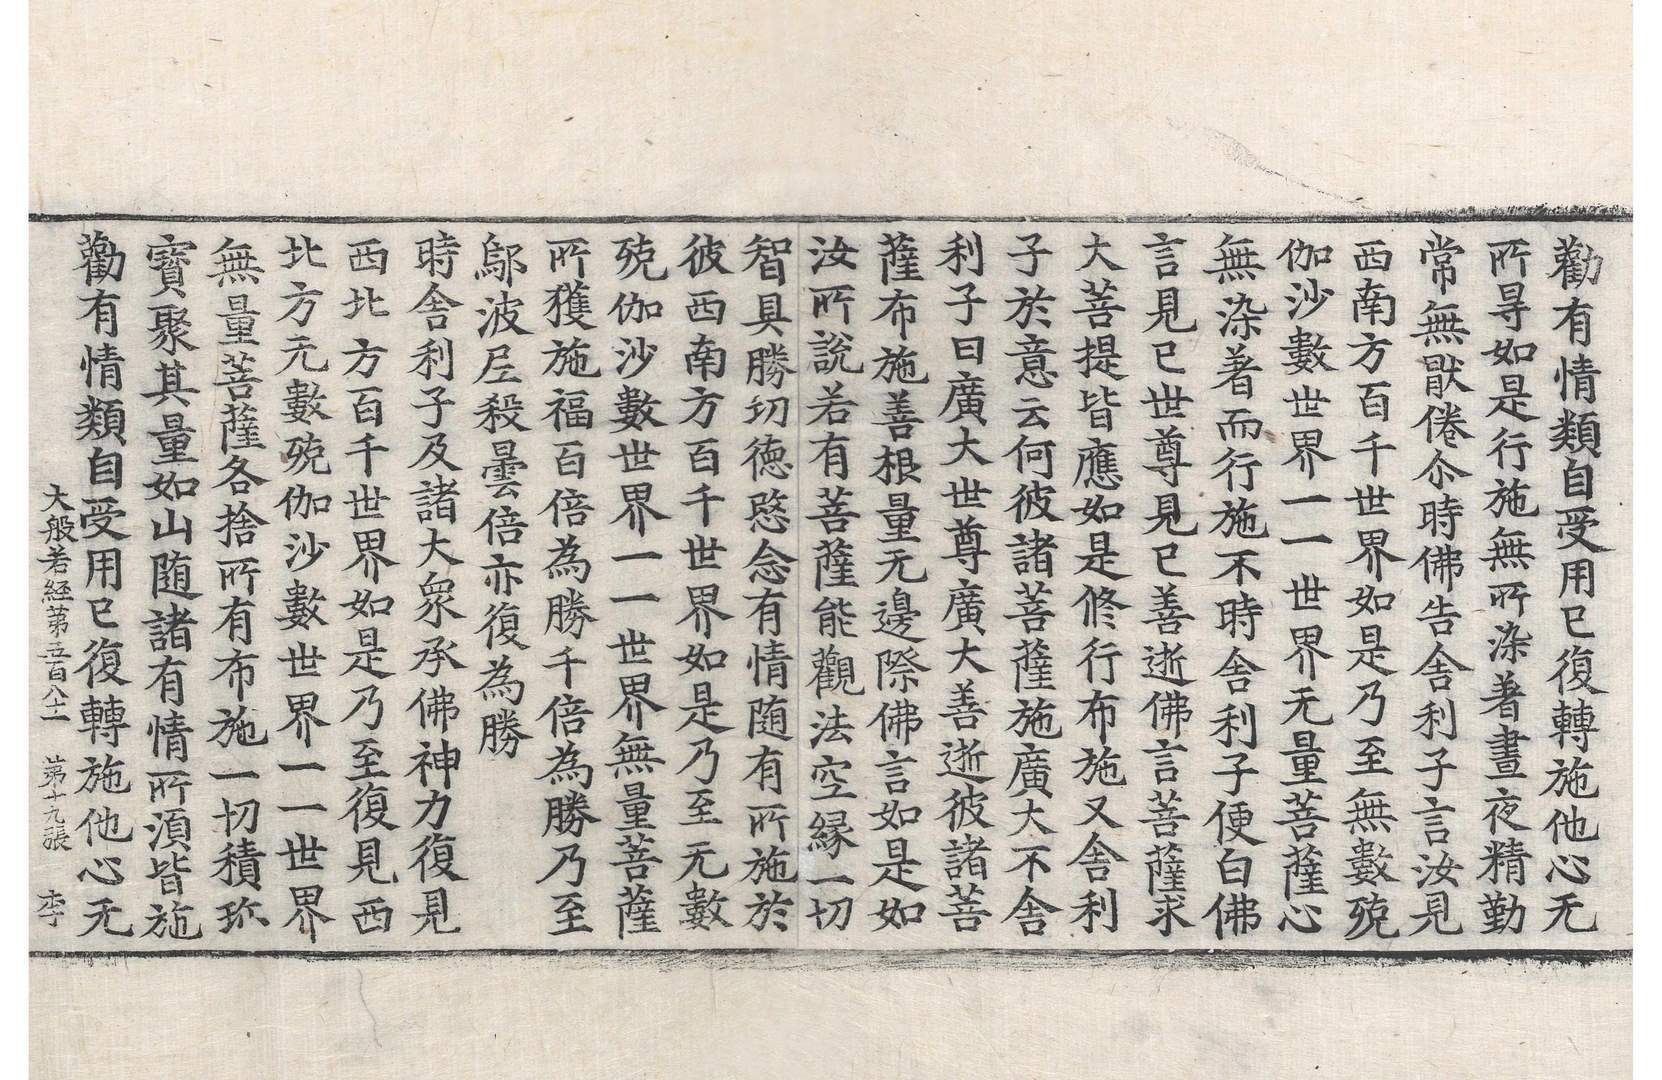 勸有情類自受用已復轉施他心无
所㝵如是行施無所染著晝夜精勤
常無猒倦尒時佛告舍利子言汝見
西南方百千世界如是乃至無數殑
伽沙數世界一一世界无量菩薩心
無染著而行施不時舍利子便白佛
言見已世尊見已善逝佛言菩薩求
大菩提皆應如是修行布施又舍利
子於意云何彼諸菩薩施廣大不舍
利子曰廣大世尊廣大善逝彼諸菩
薩布施善根量无邊際佛言如是如
汝所說若有菩薩能觀法空縁一切
智具勝切德愍念有情随有所施於
彼西南方百千世界如是乃至无數
殑伽沙數世界一一世界無量菩薩
所獲施福百倍為勝千倍為勝乃至
鄔波尼殺曇倍亦復為勝
時舍利子及諸大衆承佛神力復見
西北方百千世界如是乃至復見西
北方无數殑伽沙數世界一一世界
無量菩薩各捨所有布施一切積珎
寶聚其量如山随諸有情所湏皆施
勸有情類自受用已復轉施他心无
大般若経第五百八十一 第十九張 李